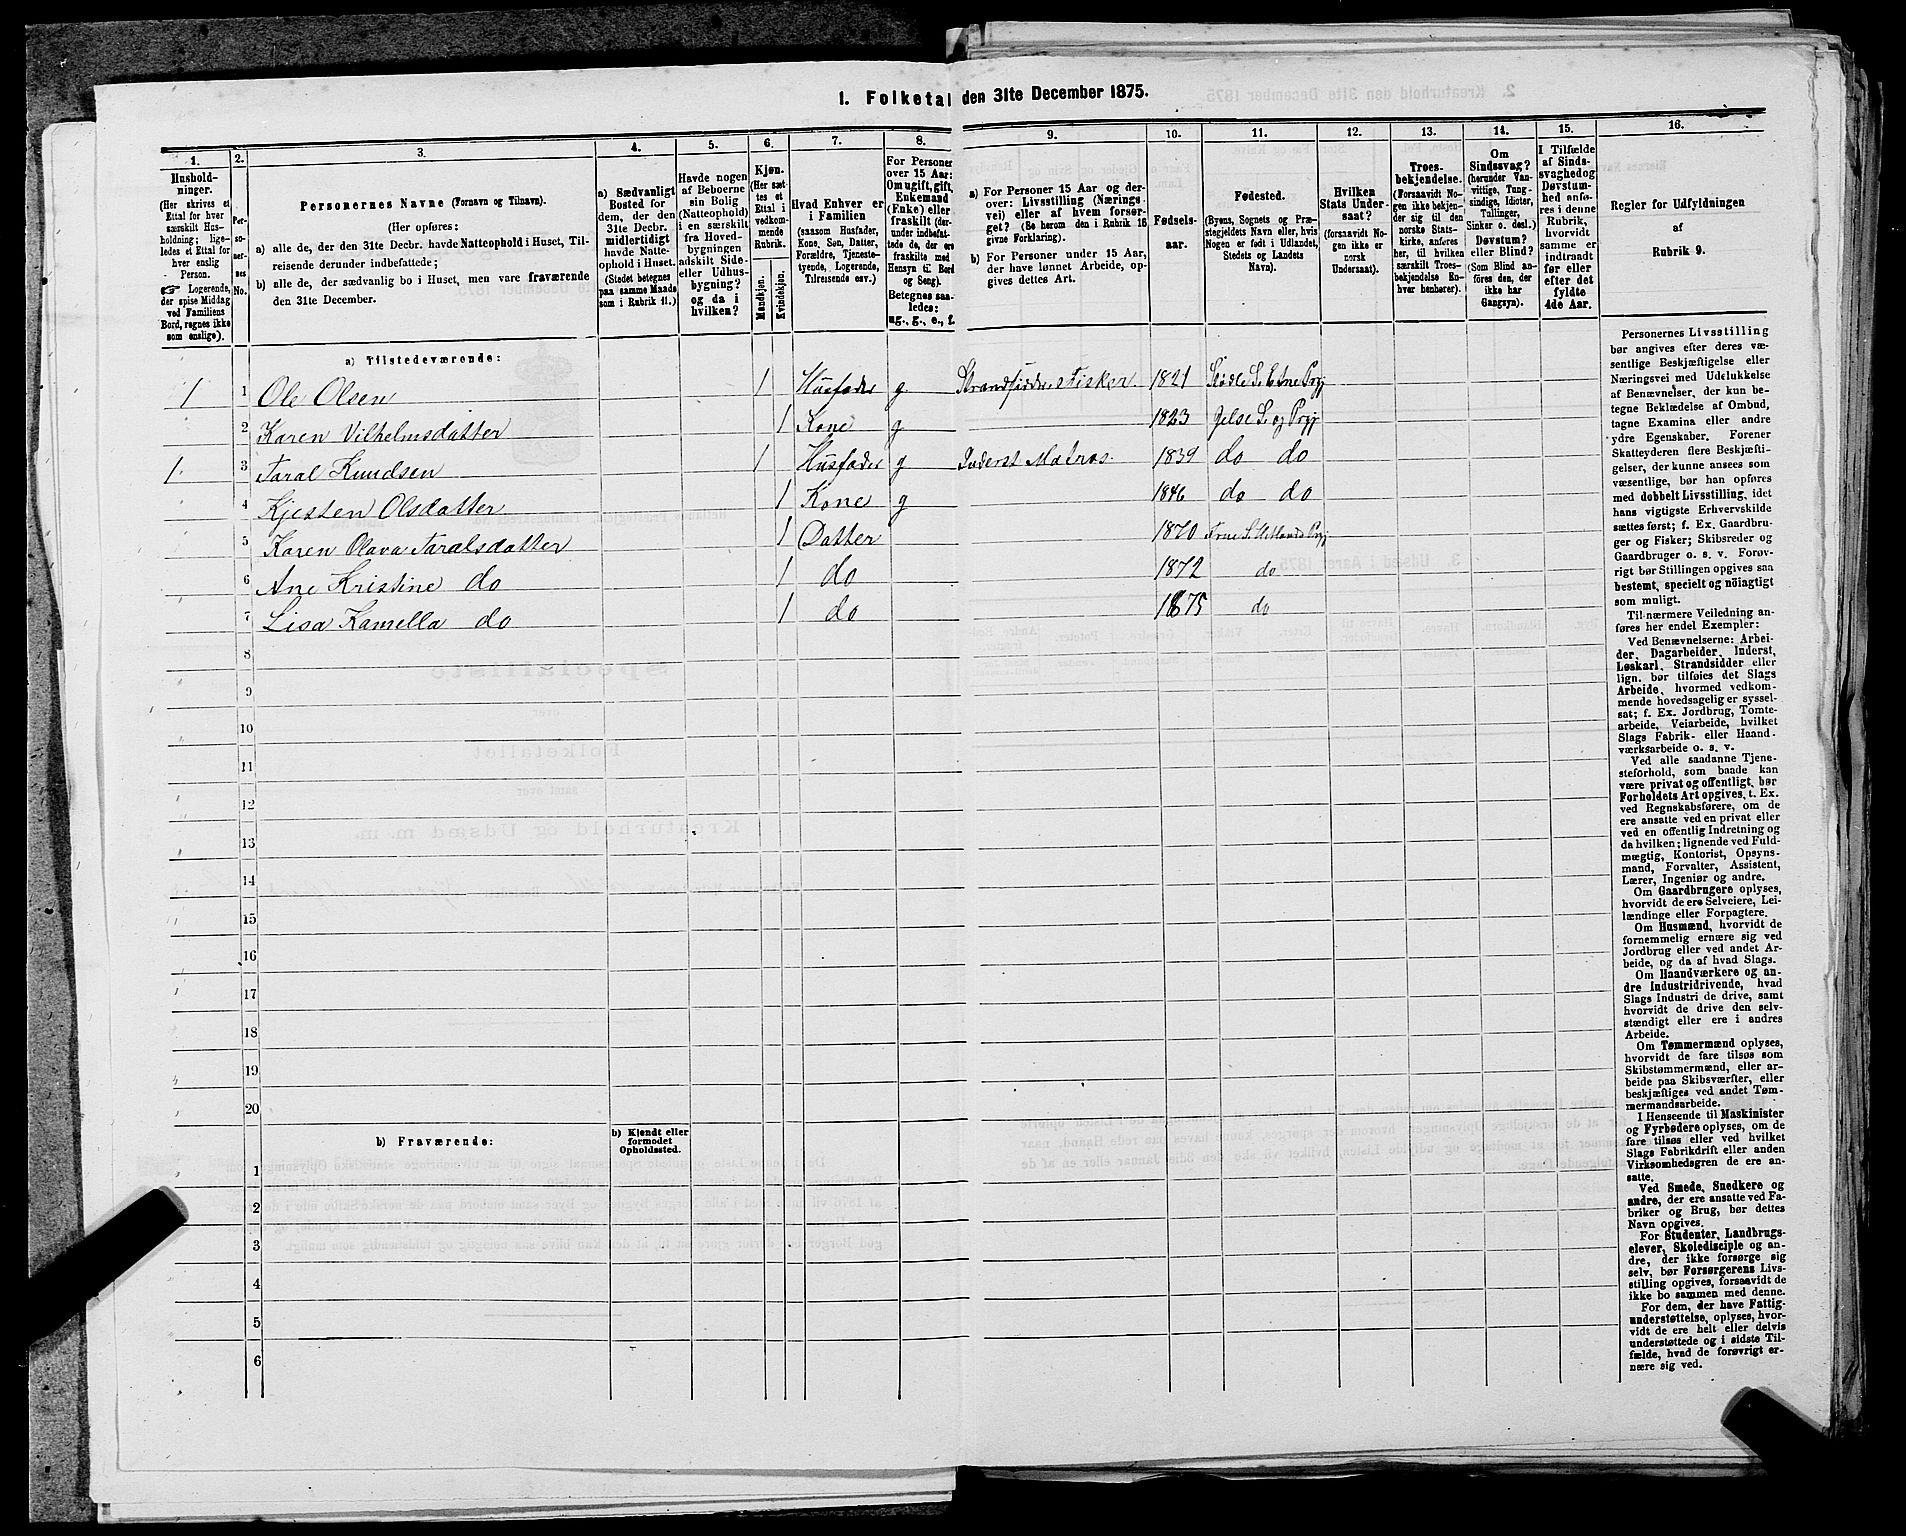 1. Folketal den 31te December 1875.
1.
2.
3.
4.
5.
6.
7.
8.
9.
10.
11.
12.
13.
14.
15.
16.
Hushold-
ninger.
(Her skrives et
Ettal for hver
særskilt Hus-
holdning; lige-
ledes et Ettal for
hver enslig
Person.
☞ Logerende,
der spise Middag
ved Familiens
Bord, regnes ikke
som enslige).
Per-
so-
ner-
nes
No.
Personernes Navne (Fornavn og Tilnavn).
(Her opføres:
a) alle de, der den 31te Decbr. havde Natteophold i Huset, Til-
reisende derunder indbefattede;
b) alle de, der sædvanlig bo i Huset, men vare fraværende
den 31te December.
a) Sædvanligt
Bosted for
dem, der den
31te Decbr.
midlertidigt
havde Natte-
ophold i Huset.
(Stedet betegnes
paa samme Maade
som i Rubrik 11.)
Havde nogen
af Beboerne
sin Bolig
(Natteophold)
i en særskilt
fra Hoved-
bygningen
adskilt Side-
eller Udhus-
bygning?
og da i
hvilken?
Kjøn.
(Her sæt-
tes et
Ettal i
vedkom-
mende
Rubrik.
Mandkjøn.
Kvindekjøn.
Hvad Enhver er
i Familien
(saasom Husfader,
Kone, Søn, Datter,
Forældre, Tjeneste-
tyende, Logerende,
Tilreisende osv.)
For Personer
over 15 Aar:
Om ugift, gift,
Enkemand
(Enke) eller
fraskilt (der-
under indbefat-
tede de, der ere
fraskilte med
Hensyn til Bord
og Seng).
Betegnes saa-
ledes:
ug., g., e., f.
a) For Personer 15 Aar og der-
over: Livsstilling (Nærings-
vei) eller af hvem forsør-
get? (Se herom den i Rubrik 16
givne Forklaring).
b) For Personer under 15 Aar,
der have lønnet Arbeide, op-
gives dettes Art.
Fødsels-
aar.
Fødested.
(Byens, Sognets og Præ-
stegjeldets Navn eller, hvis
Nogen er født i Udlandet,
Stedets og Landets
Navn).
Hvilken
Stats Under-
saat?
(forsaavidt No-
gen ikke er
norsk
Undersaat).
Troes-
bekjendelse.
(Forsaavidt No-
gen ikke bekjen-
der sig til den
norske Stats-
kirke, anføres
her, til hvilken
særskilt Troes-
bekjendelse En-
hver henhører).
Om
Sindssvag?
(herunder Van-
vittige, Tung-
sindige, Idioter,
Tullinger,
Sinker o. desl.)
Døvstum?
eller Blind?
(Som Blind an-
føres den, der
ikke har
Gangsyn).
I Tilfælde
af Sinds-
svaghed og
Døvstum-
hed anfø-
res i denne
Rubrik,
hvorvidt
samme er
indtraadt
før eller
efter det
fyldte
4de Aar.
Regler for Udfyldningen
af
Rubrik 9.
a) Tilstedeværende:
1 1 Ole Olsen 1 Husfader g Strandsidder Fisker. 1821 Stødle S. Etne Prgj
2 Karen Vilhelmsdatter 1 Kone g 1823 Jelse S. og Prgj
1. 3 Taral Knudsen 1 Husfader g Inderst Matros. 1839 do do
4 Kjesten Olsdatter 1 Kone g 1846 do do
5 Karen Olava Taralsdatter 1 Datter 1870 S. Hetlands Prgj
6 Ane Kristine do 1 do 1872 do
7 Lisa Kamella do 1 do 1875 do
8
9
10
11
12
13
14
15
16
17
18
19
20
b) Fraværende:
b) Kjendt eller
formodet
Opholdssted.
1
2
3
4
5
6
Personernes Livsstilling
bør angives efter deres væ-
sentlige Beskjæftigelse eller
Næringsvei med Udelukkelse
af Benævnelser, der kun be-
tegne Beklædelse af Ombud,
tagne Examina eller andre
ydre Egenskaber. Forener
Skatteyderen flere Beskjæfti-
gelser, der kunne ansees som
væsentlige, bør han opføres
med dobbelt Livsstilling, idet
hans vigtigste Erhvervskilde
sættes først; f. Ex. Gaardbru-
ger og Fisker; Skibsreder og
Gaardbruger o. s. v. Forøv-
rigt bør Stillingen opgives saa
bestemt, specielt og nøiagtigt
som muligt.
Til nærmere Veiledning an-
føres her endel Exempler:
Ved Benævnelserne: Arbei-
der, Dagarbeider, Inderst,
Løskarl, Strandsidder eller
lign. bør tilføies det Slags
Arbeide, hvormed vedkom-
mende hovedsagelig er syssel-
sat; f. Ex. Jordbrug, Tomte-
arbeide, Veiarbeide, hvilket
Slags Fabrik- eller Haand-
værksarbeide o. s. v.
Ved alle saadanne Tjene-
steforhold, som baade kan
være privat og offentligt, bør
Forholdets Art opgives, t. Ex.
ved Regnskabsførere, om de
ere ansatte ved en privat eller
ved en offentlig Indretning og
da hvilken; lignende ved Fuld-
mægtig, Kontorist, Opsyns-
mand, Forvalter, Assistent,
Lærer, Ingeniør og andre.
Om Gaardbrugere oplyses,
hvorvidt de ere Selveiere, Lei-
lændinge eller Forpagtere.
Om Husmænd, hvorvidt de
fornemmelig ernære sig ved
Jordbrug eller ved andet Ar-
beide, og da af hvad Slags.
Om Haandværkere og an-
dre Industridrivende, hvad
Slags Industri de drive, samt
hvorvidt de drive den selv-
stændigt eller ere i andres
Arbeide.
Om Tømmermænd oplyses,
hvorvidt de fare tilsøs som
Skibstømmermænd, eller ar-
beide paa Skibsværfter, eller
beskjæftiges ved andet Tøm-
mermandsarbeide.
I Henseende til Maskinister
og Fyrbødere oplyses, om de
fare tilsøs eller ved hvilket
Slags Fabrikdrift eller anden
Virksomhedsgren de ere an-
satte.
Ved Smede, Snedkere og
andre, der ere ansatte ved Fa-
briker og Brug, bør dettes
Navn opgives.
For Studenter, Landbrugs-
elever, Skoledisciple og an-
dre, der ikke forsørge sig
selv, bør Forsørgerens Livs-
stilling opgives, forsaavidt de
ikke bo sammen med denne.
For dem, der have Fattig-
understøttelse, oplyses, hvor-
vidt de ere helt eller delvis
understøttede og i sidste Til-
fælde, hvad de forøvrigt er-
nære sig ved.